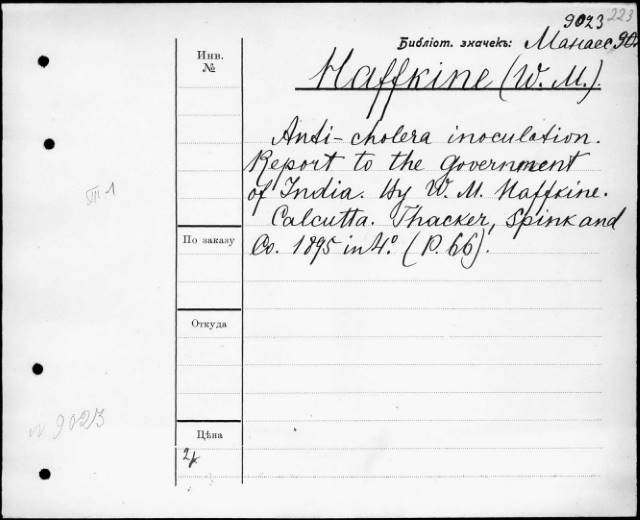 9023 223
Библіот. значекъ: Манаес
Инв.
№
Haffkine (W. M.).
Anti-cholera inoculation.
Report to the government
of India. By W. M. Haffkine.
Calcutta. Thacker, Spink and
Co. 1895 in 4.° (P. 66).
По заказу
Откуда
9023
Цѣна